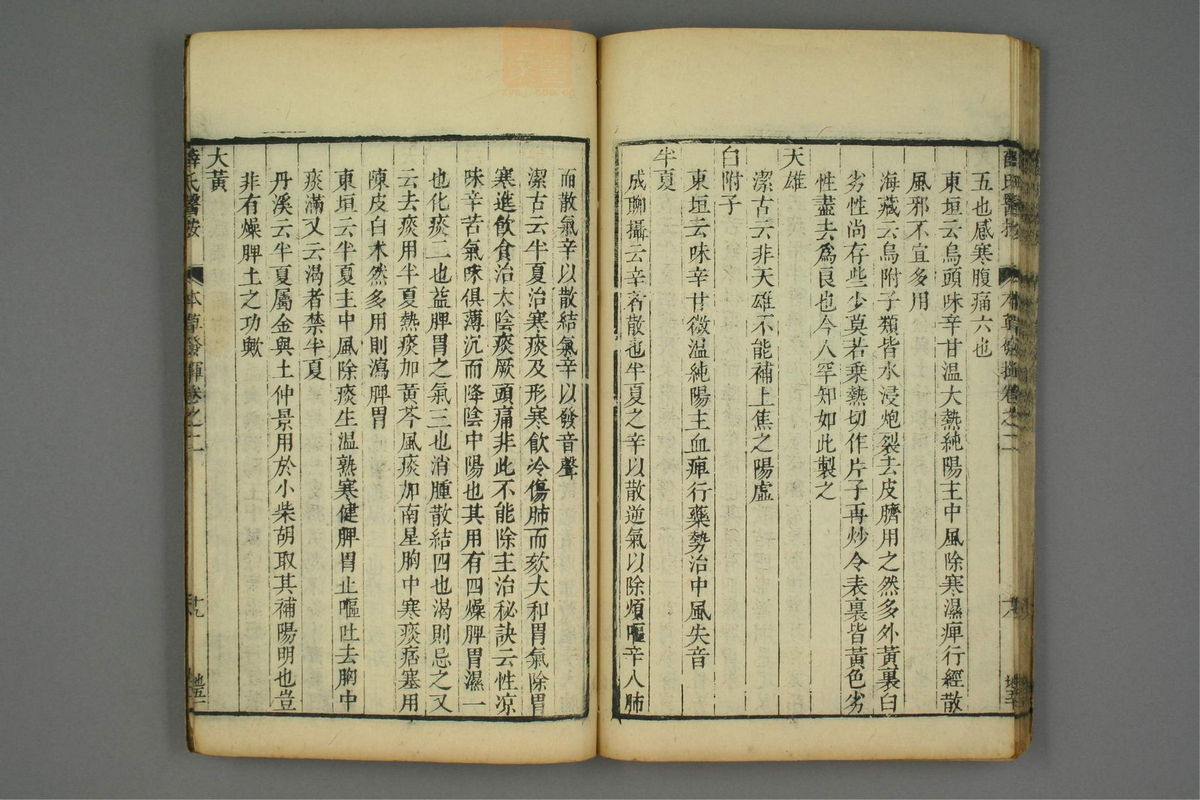 五也感寒腹痛六也
東垣云烏頭味辛甘温大熱純陽主中風除寒濕痺行經散
風邪不宜多用
海藏云烏附子類皆水浸炮裂去皮臍用之然多外黃裏白
劣性尚存些少莫若乗熱切作片子再炒令表裏皆黃色劣
性盡去爲良也今人罕知如此製之
天雄
潔古云非天雄不能補上焦之陽虛
白附子
東垣云味辛甘微温純陽主血痺行藥勢治中風失音
半夏
成聊攝云辛者散也半夏之辛以散逆氣以除煩嘔辛入肺
而散氣辛以散結氣辛以發音聲
潔古云半夏治寒痰及形寒飲冷傷肺而欬大和胃氣除胃
寒進飲食治太陰痰厥頭痛非此不能除主治秘訣云性凉
味辛苦氣味俱薄沉而降陰中陽也其用有四燥脾胃濕一
也化痰二也益脾胃之氣三也消腫散結四也渴則忌之又
云去痰用半夏熱痰加黃芩風痰加南星胸中寒痰痞塞用
陳皮白术然多用則瀉脾胃
東垣云半夏主中風除痰生温熟寒健脾胃止嘔吐去胸中
痰滿又云渴者禁半夏
丹溪云半夏屬金與土仲景用於小柴胡取其補陽明也豈
非有燥脾土之功歟
大黃
薛氏醫按
本草發揮卷之二
十九
地五